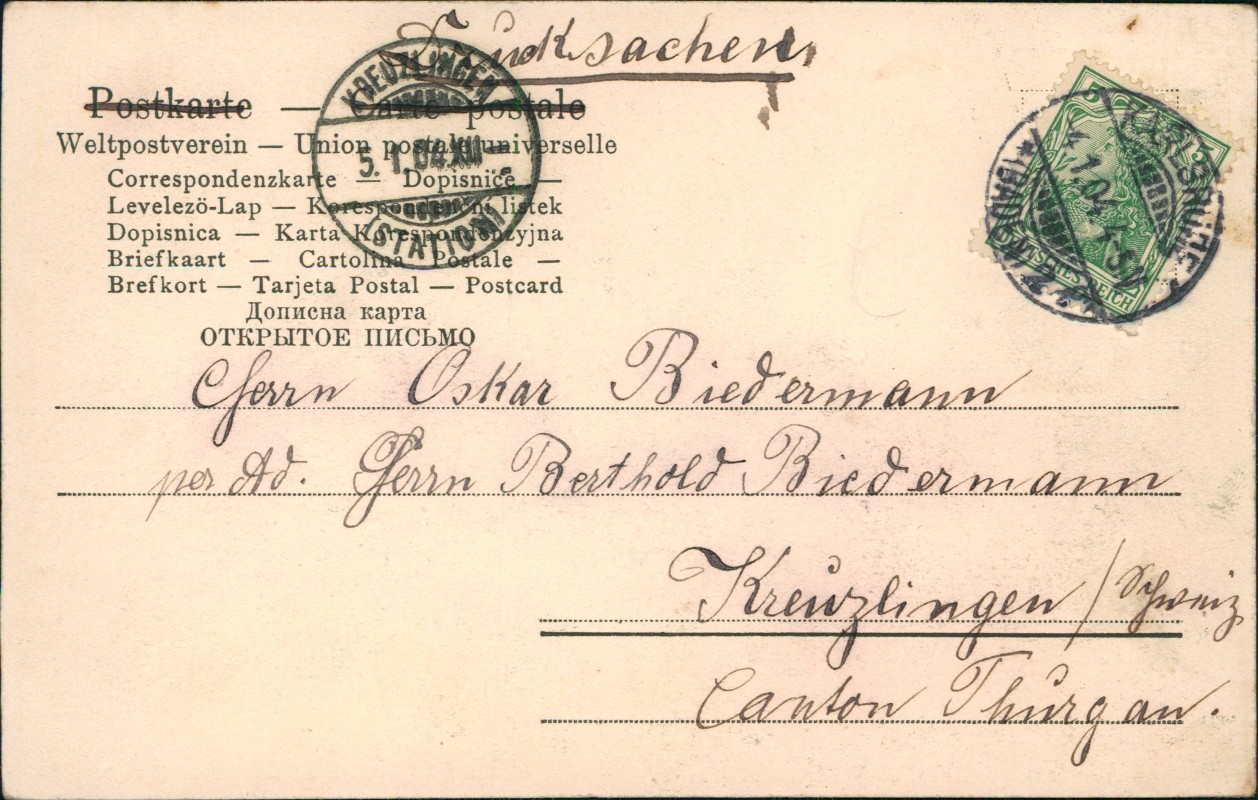 Drucksachen
Postkarte — Carte postale
Weltpostverein — Union postale universelle
Correspondenzkarte — Dopisnice —
Levelezö-Lap — Korespondenční listek
Dopisnica — Karta Korespondenzyjna
Briefkaart — Cartolina Postale —
Brefkort — Tarjeta Postal — Postcard
Дописна карта
ОТКРЫТОЕ ПИСЬМО
KREUZLINGEN
5.1.04.XII
(STATION)
KARLSRUHE
(BADEN)
1.04.
5
DEUTSCHES REICH
Herrn Oskar Biedermann
per Ad. Herrn Berthold Biedermann
Kreuzlingen / Schweiz
Canton Thurgau.